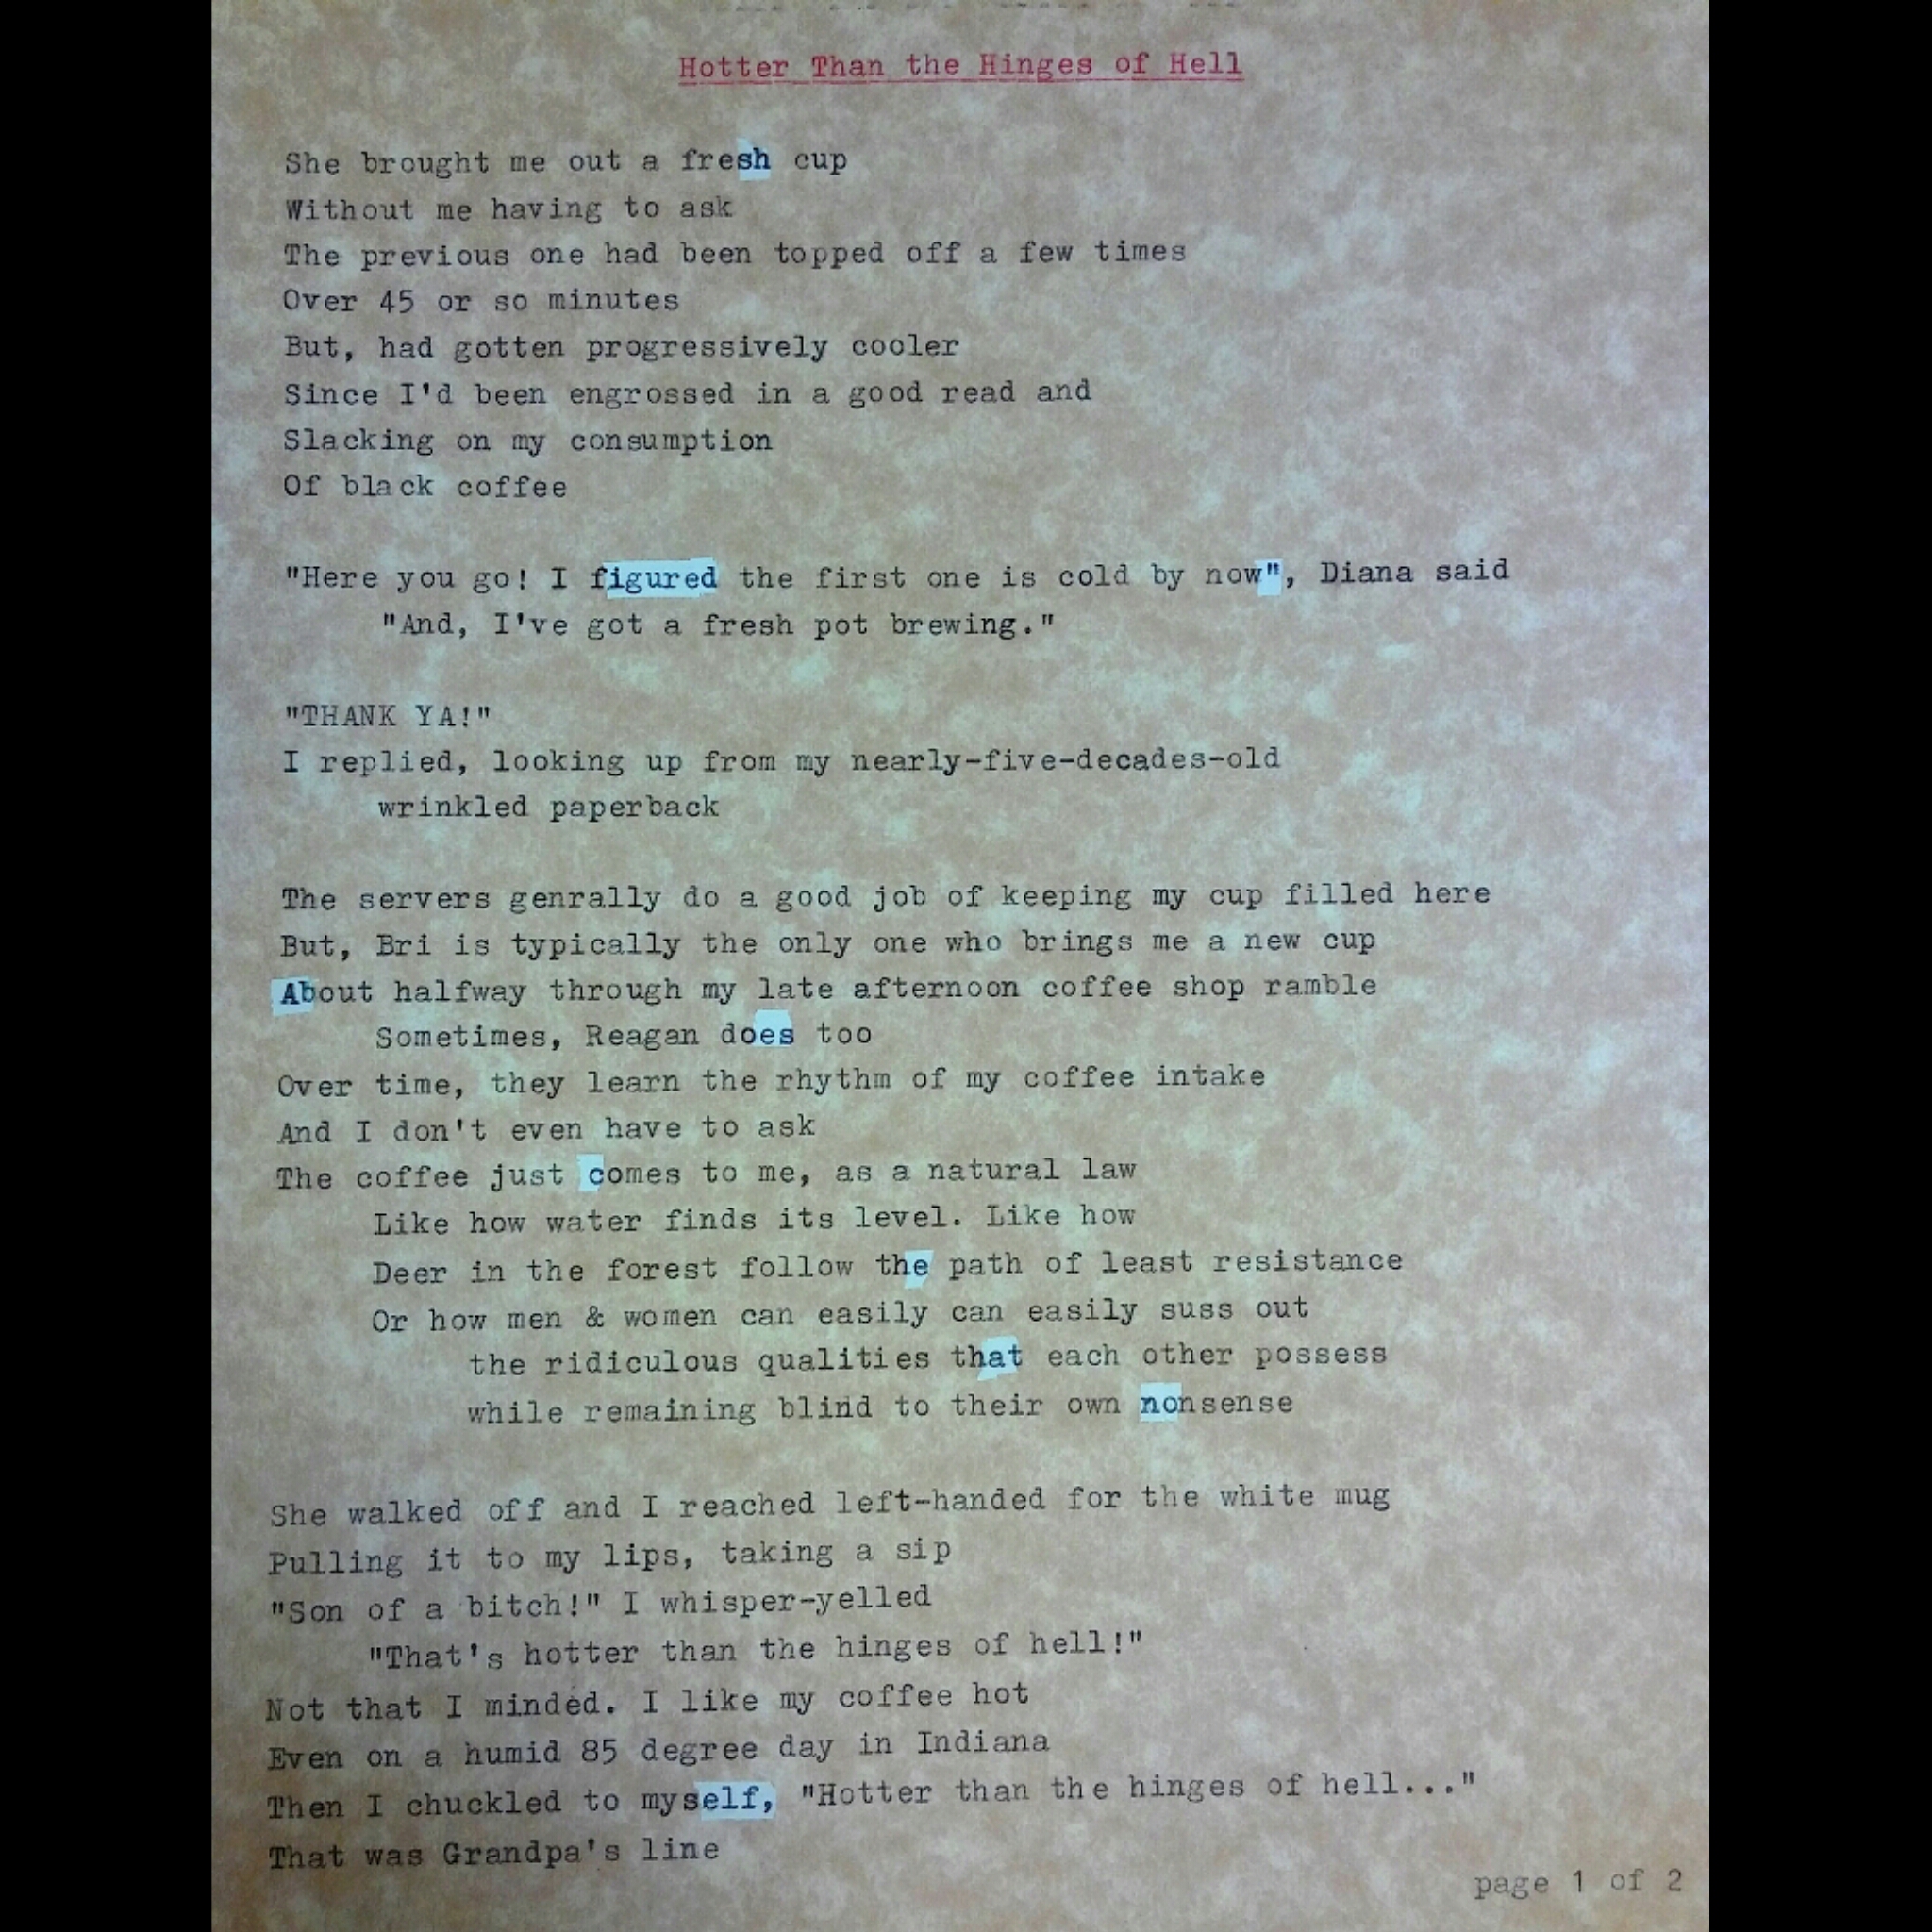 Hotter Than the Hinges of Hell
She brought me out a fresh cup
Without me having to ask
The previous one had been topped off a few times
Over 45 or so minutes
But, had gotten progressively cooler
Since I'd been engrossed in a good read and
Slacking on my consumption
Of black coffee
"Here you go! I figured the first one is cold by now", Diana said
"And, I've got a fresh pot brewing."
"THANK YA!"
I replied, looking up from my nearly-five-decades-old
wrinkled paperback
The servers genrally do a good job of keeping my cup filled here
But, Bri is typically the only one who brings me a new cup
About halfway through my late afternoon coffee shop ramble
Sometimes, Reagan does too
Over time, they learn the rhythm of my coffee intake
And I don't even have to ask
The coffee just comes to me, as a natural law
Like how water finds its level. Like how
Deer in the forest follow the path of least resistance
Or how men & women can easily can easily suss out
the ridiculous qualities that each other possess
while remaining blind to their own nonsense
She walked off and I reached left-handed for the white mug
Pulling it to my lips, taking a sip
"Son of a bitch!" I whisper-yelled
"That's hotter than the hinges of hell!"
Not that I minded. I like my coffee hot
Even on a humid 85 degree day in Indiana
Then I chuckled to myself, "Hotter than the hinges of hell..."
That was Grandpa's line
page 1 of 2